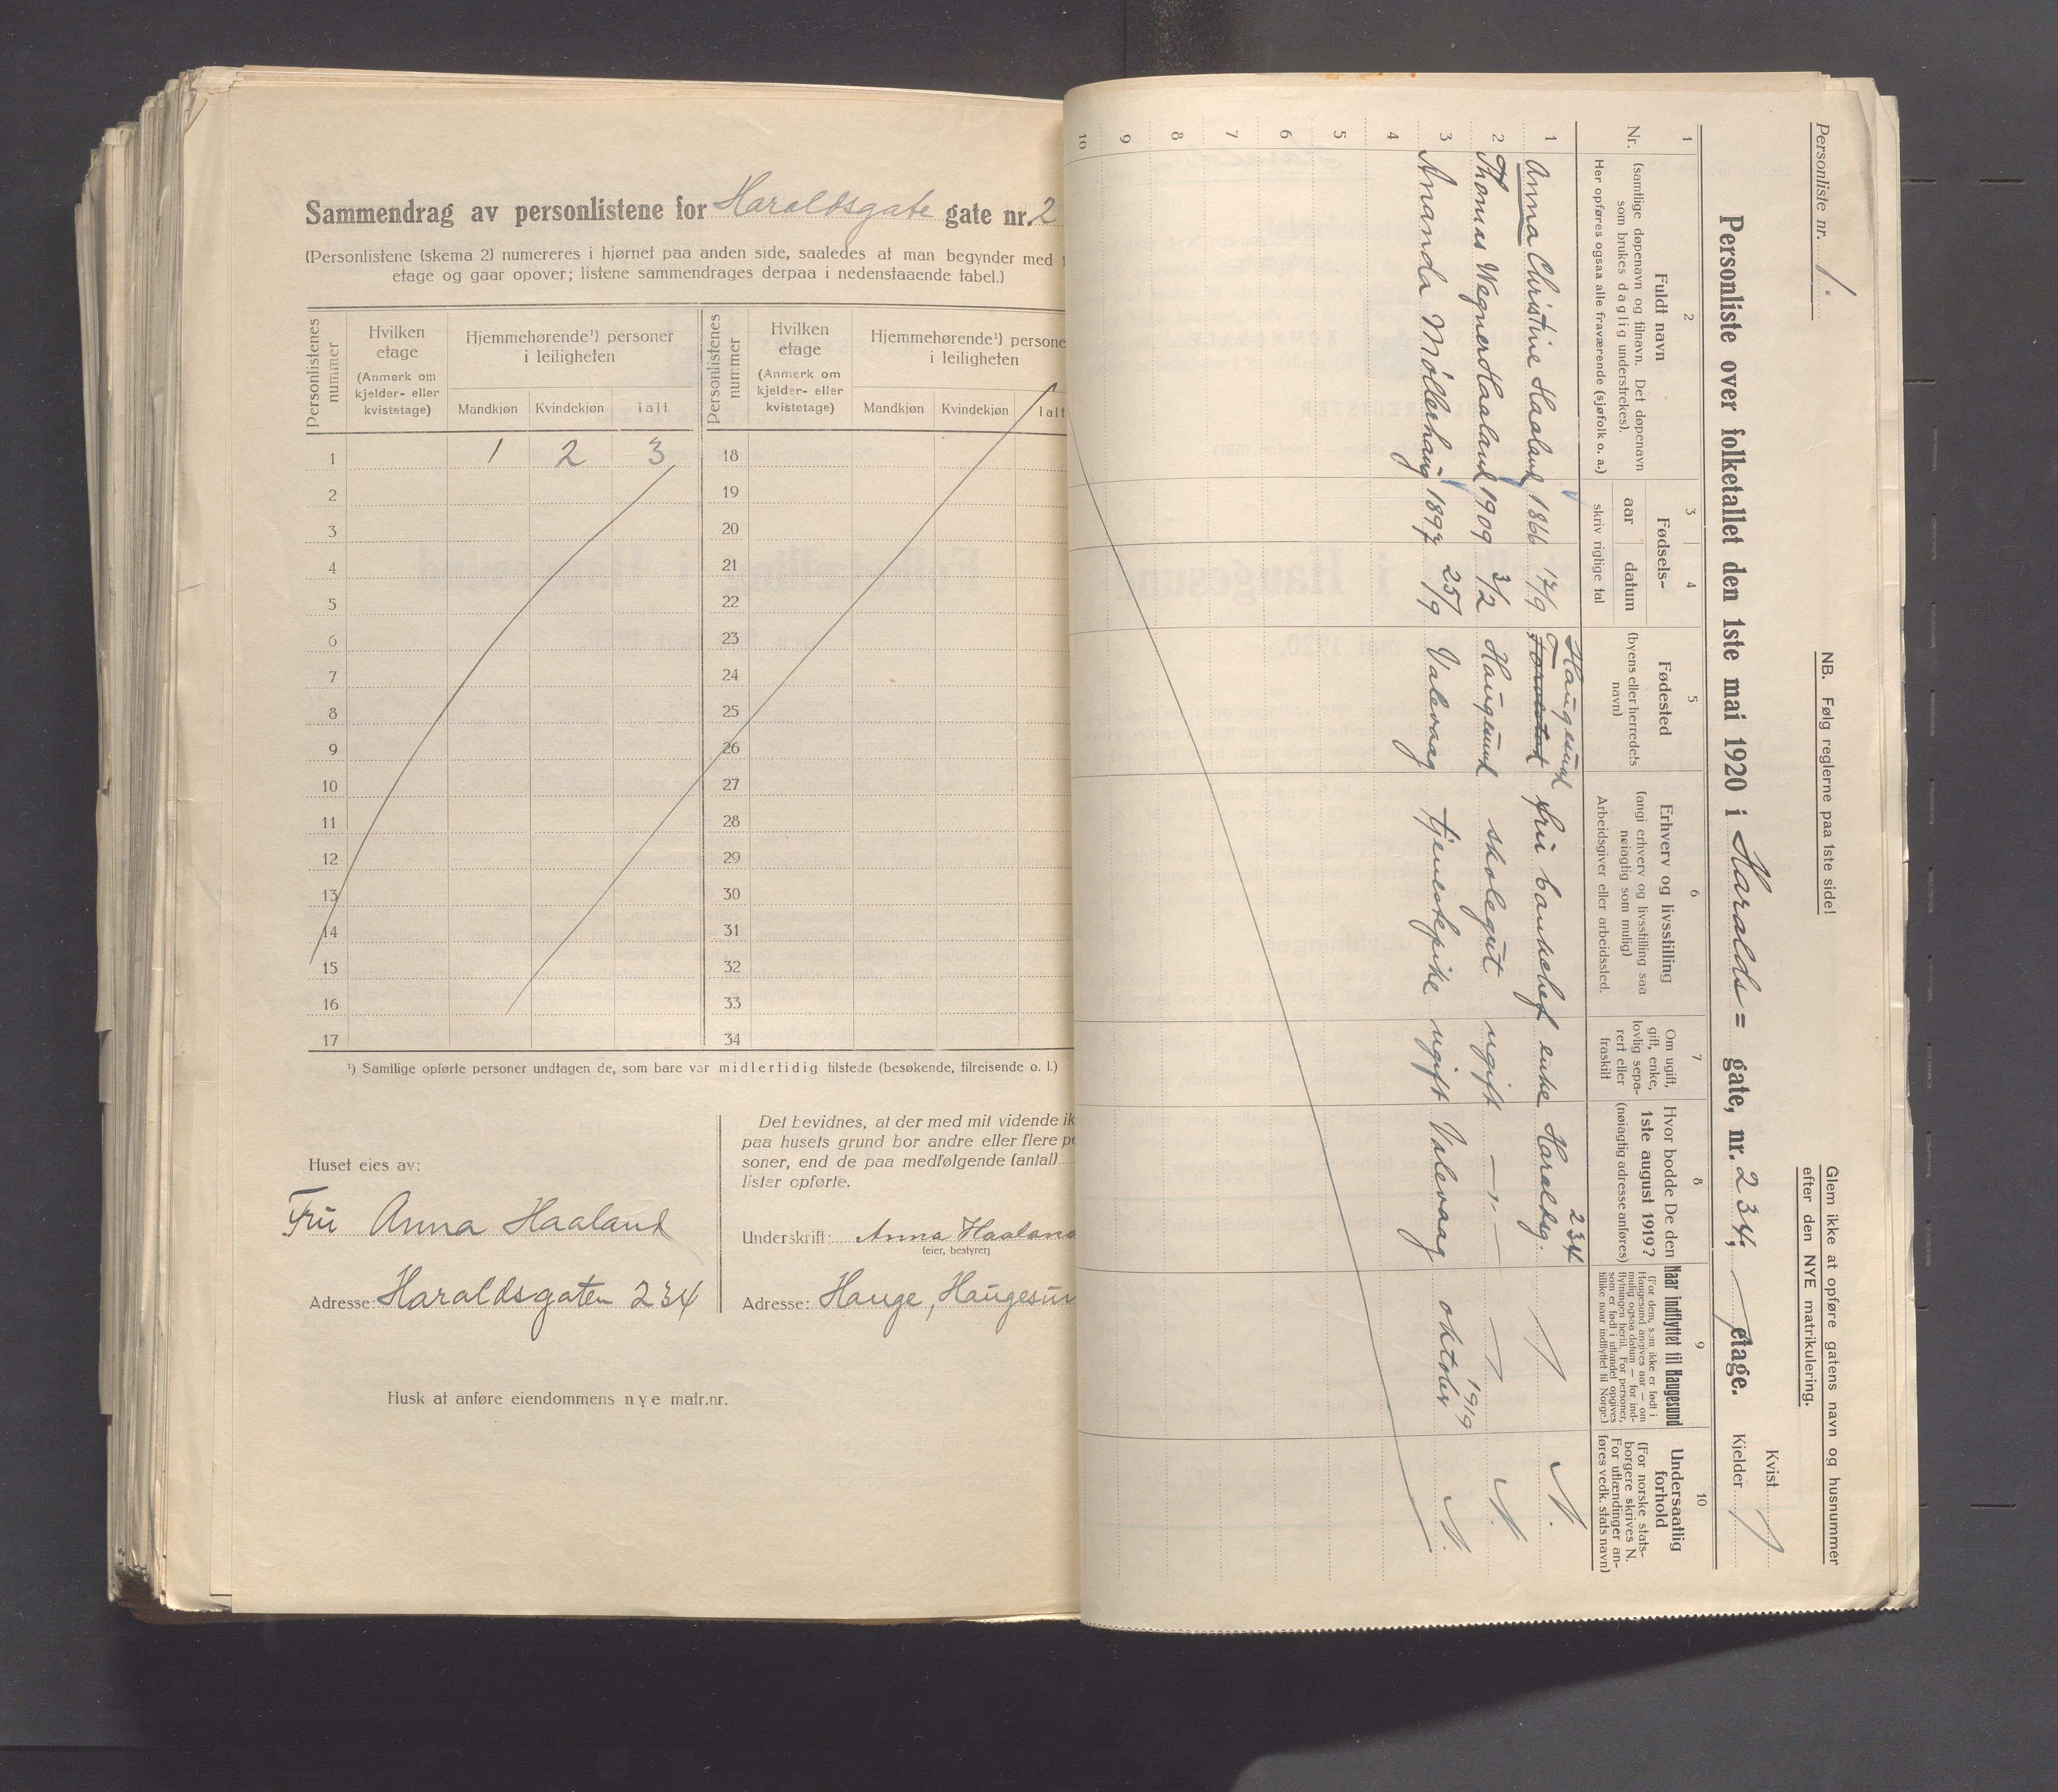 Sammendrag av personlistene for Haraldsgate gate nr. 2
(Personlistene (skema 2) numereres i hjørnet paa anden side, saaledes at man begynder med 1
etage og gaar opover; listene sammendrages derpaa i nedenstaaende tabel.)
Personlistenes nummer
Hvilken etage
(Anmerk om kjelder- eller kvistetage)
Hjemmehørende¹) personer i leiligheten
Mandkjøn Kvindekjøn ialt
Personlistenes nummer
Hvilken etage
(Anmerk om kjelder- eller kvistetage)
Hjemmehørende¹) persone
i leiligheten
Mandkjøn Kvindekjøn Ialt
1 1 2 3 18
2 19
3 20
4 21
5 22
6 23
7 24
8 25
9 26
10 27
11 28
12 29
13 30
14 31
15 32
16 33
17 34
¹) Samtlige opførte personer undtagen de, som bare var midlertidig tilstede (besøkende, tilreisende o. l.)
Huset eies av:
Fru Anna Haaland
Adresse: Haraldsgaten 234
Det bevidnes, at der med mit vidende ik
paa husets grund bor andre eller flere pe
soner, end de paa medfølgende (antal)
lister opførte.
Underskrift: Anna Haaland
(eier, bestyrer)
Adresse: Hauge, Haugesun
Husk at anføre eiendommens nye matr.nr.
Personliste nr. 1.
NB. Følg reglerne paa 1ste side!
Glem ikke at opføre gatens navn og husnummer
efter den NYE matrikulering.
Personliste over folketallet den 1ste mai 1920 i Haralds= gate, nr. 234, etage.
Kvist
Kjelder
1 2 3 4 5 6 7 8 9 10
Nr.
Fuldt navn
(samtlige døpenavn og tilnavn. Det døpenavn
som brukes daglig understrekes).
Her opføres ogsaa alle fraværende (sjøfolk o. a.)
Fødsels-
aar datum
skriv rigtige tal
Fødested
(byens eller herredets
navn)
Erhverv og livsstilling
(angi erhverv og livsstilling saa
nøiagtig som mulig)
Arbeidsgiver eller arbeidssted.
Om ugift,
gift, enke,
lovlig sepa-
rert eller
fraskilt
Hvor bodde De den
1ste august 1919?
(nøiagtig adresse anføres)
Naar indflyttet til Haugesund
(For dem, som ikke er født i
Haugesund angives aar — om
mulig ogsaa datum — for ind-
flytningen hertil. For personer,
som er født i utlandet opgives
tillike naar indflyttet til Norge.)
Undersaatlig
forhold
(For norske stats-
borgere skrives N.
For utlændinger an-
føres vedk. stats navn)
1 Anna Christine Haaland 1866 17/9 Haugesund Torvestad fru bankchef enke Haraldsg. 234 N.
2 Thomas Wegner Haaland 1909 3/2 Haugesund skolegut ugift —"— N.
3 Amanda Møllerhaug 1897 25/9 Valevaag tjenestepike ugift Valevaag oktober 1919 N.
4
5
6
7
8
9
10